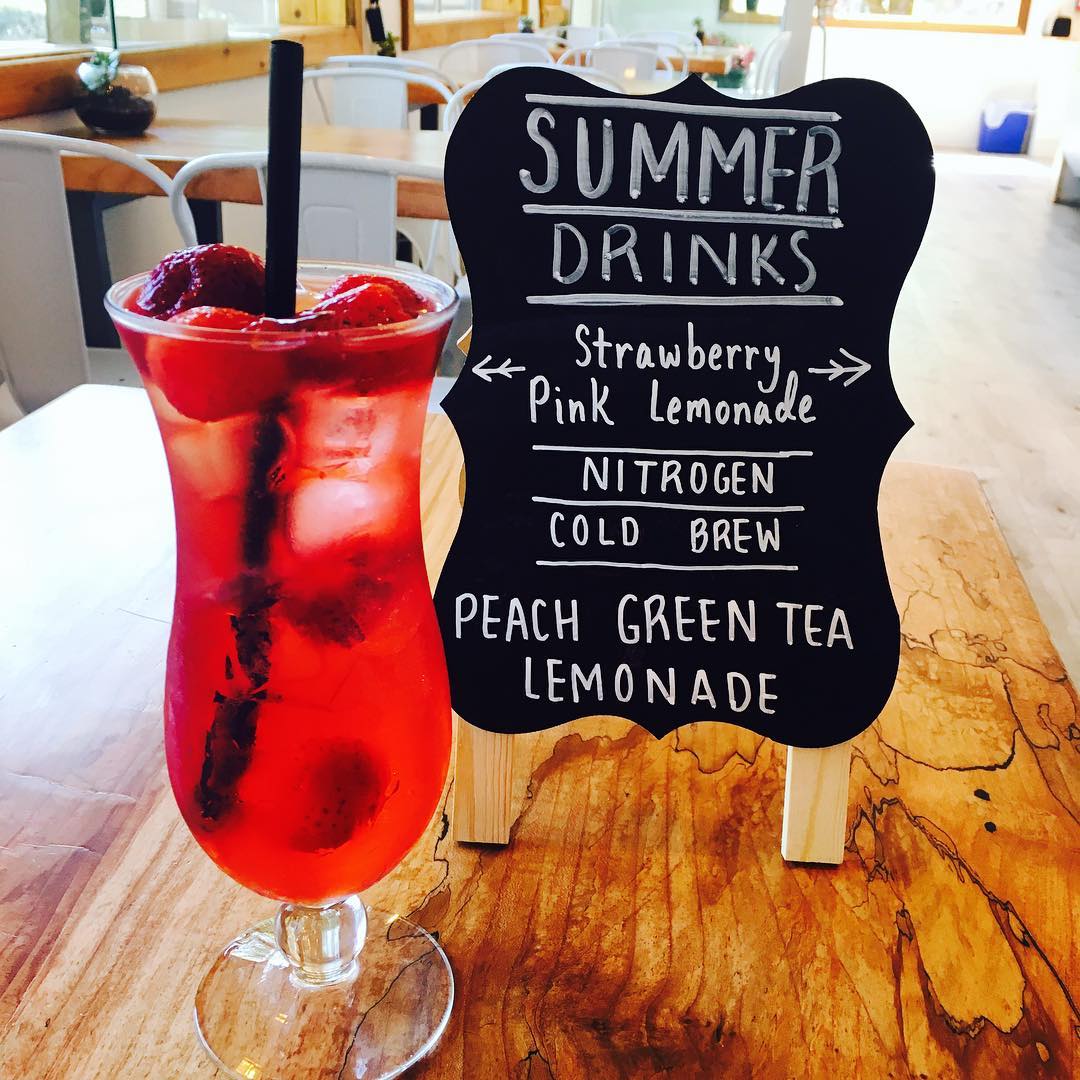 SUMMER
DRINKS
Strawberry
Pink Lemonade
NITROGEN
COLD BREW
PEACH GREEN TEA
LEMONADE